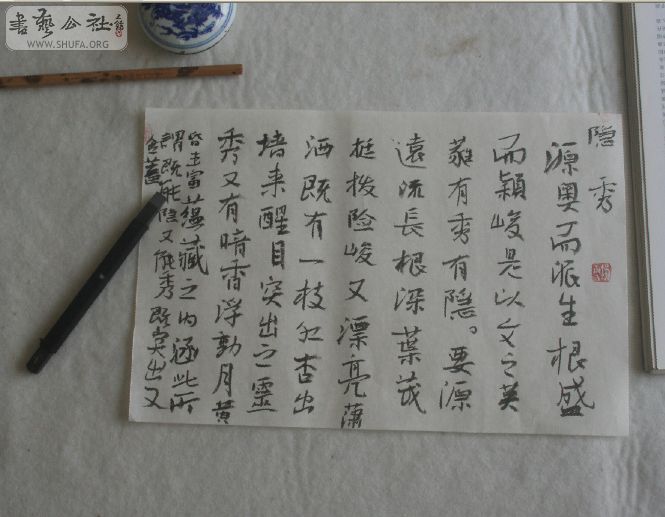 隐秀
源奥而派生根盛
而颖峻是以文之英
蕤有秀有隐。要源
遠流長根深葉茂
挺拨险峻又漂亮萧
洒既有一枝红杏出
墙来醒目突出之靈
秀又有暗香浮動月黄
昏丰富蕴藏之内涵此所
謂既能隐又能秀既突出又
含蓄
書藝公社
WWW.SHUFA.ORG